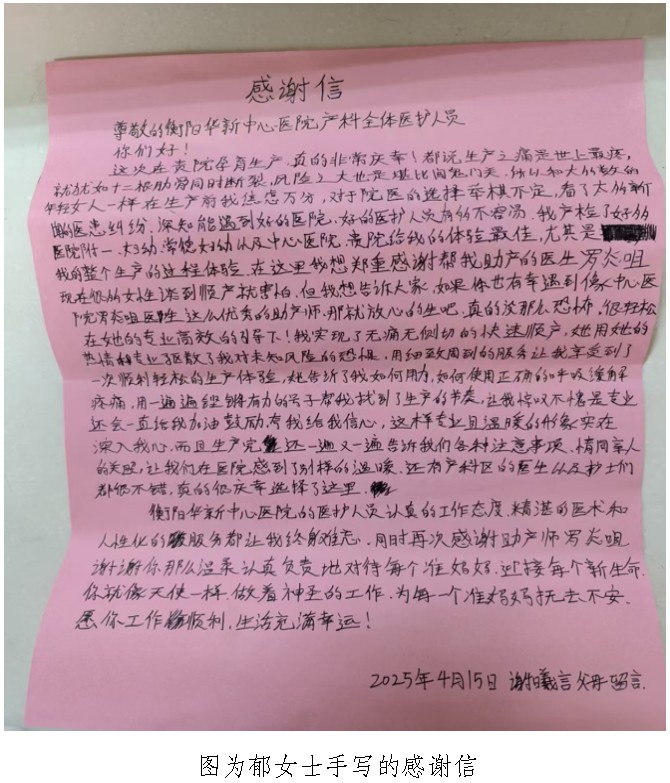 感谢信
尊敬的衡阳华新中心医院产科全体医护人员
你们好！
这次在贵院孕育生产，真的非常庆幸！都说生产之痛是世上最疼，
就犹如十二根肋骨同时断裂，风险之大也是堪比闯鬼门关，
年轻女人一样在生产前我焦虑万分，对于院医的选择举棋不定，看了大的新
闻医患纠纷，深知能遇到好的医院、好的医护人员有的不容易。我产检了好的
医院附一、妇幼、常德妇幼以及中心医院，贵院给我的体验最佳，尤其是
我的整个生产的过程体验。在这里我想郑重感谢帮我助产的医生罗炎咀
现在很的女性谈到顺产就害怕，但我想告诉大家，如果你也有幸遇到像中心医
院罗炎咀医生这么优秀的助产师，那就放心的生吧，真的没那么恐怖，很轻松
在她的专业高效的引导下！我实现了无痛无侧切的快速顺产，她用她的
热情专业驱散了我对未知风险的恐惧，用细致周到的服务让我享受到了
一次顺利轻松的生产体验，她告诉了我如何用力，如何使用正确的呼吸缓解
疼痛，用一遍遍铿锵有力的号子帮我找到了生产的节奏，让我惊叹不愧是专业
还会一直给我加油鼓励，夸我给我信心，这样专业且温暖的形象实在
深入我心，而且生产完还一遍又一遍告诉我们各种注意事项，情同家人
的关照，让我们在医院感到了别样的温暖，还有产科区的医生以及护士们
都很不错，真的很庆幸选择了这里。
衡阳华新中心医院的医护人员认真的工作态度、精湛的医术和
人性化的服务都让我终身难忘，同时再次感谢助产师罗炎咀
谢谢你那么温柔认真负责地对待每个准妈妈，迎接每个新生命
你就像天使一样，做着神圣的工作，为每一个准妈妈抚去不安。
愿你工作顺利，生活充满幸运！
2025年4月15日 谢曦言父母留言
图为郁女士手写的感谢信